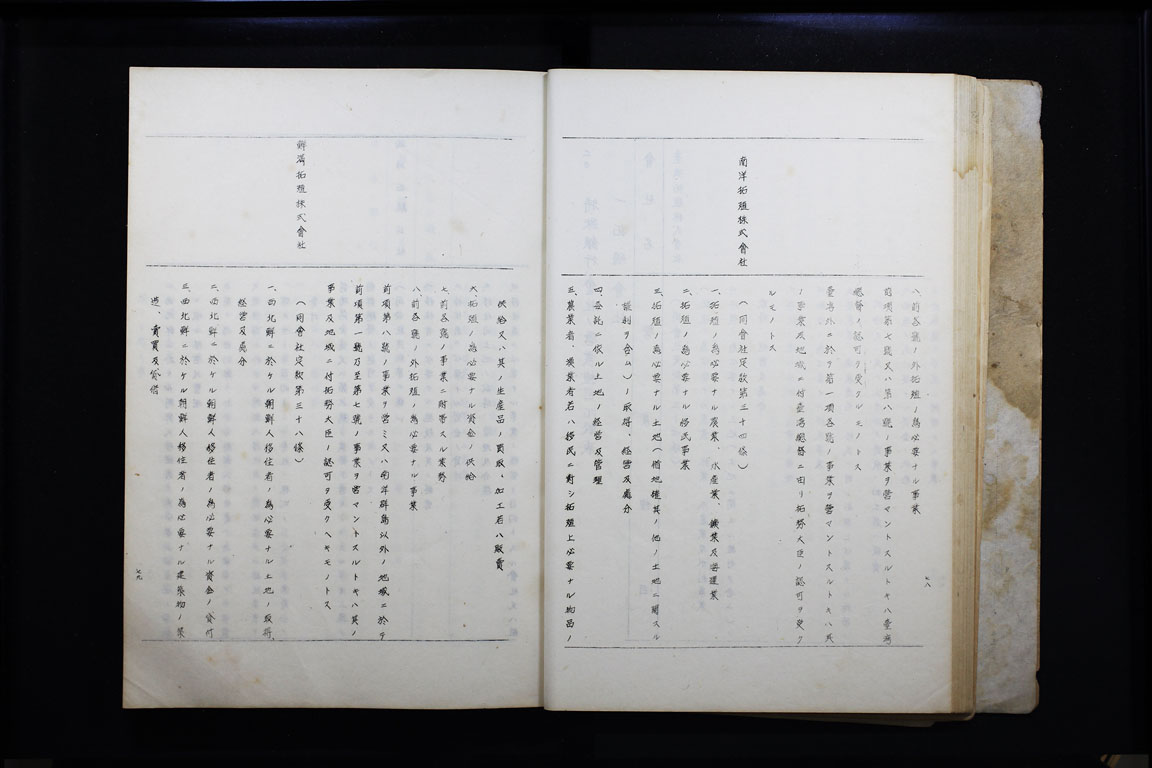 八、前各號ノ外拓殖ノ爲必要ナル事業
前項第七號又ハ第八號ノ事業ヲ營マントスルトキハ臺灣
總督ノ認可ヲ受クルモノトス
臺灣外ニ於テ第一項各號ノ事業ヲ營マントスルトキハ其
ノ事業及地域ニ付臺灣總督ニ由リ拓務大臣ノ認可ヲ受ク
ルモノトス
南洋拓殖株式會社
(同會社定款第三十四條)
一、拓殖ノ爲必要ナル農業、水產業、鑛業及海運業
二、拓殖ノ爲必要ナル移民事業
三、拓殖ノ爲必要ナル土地(借地權其ノ他ノ土地ニ關スル
權利ヲ含ム)ノ取得、經營及處分
四、委託ニ依ル土地ノ經營及管理
五、農業者、漁業者若ハ移民ニ對シ拓殖上必要ナル物品ノ
七八
供給又ハ其ノ生產品ノ買取、加工若ハ販賣
六、拓殖ノ爲必要ナル資金ノ供給
七、前各號ノ事業ニ附帶スル業務
八、前各號ノ外拓殖ノ爲必要ナル事業
前項第八號ノ事業ヲ營ミ又ハ南洋群島以外ノ地域ニ於テ
前項第一號乃至第七號ノ事業ヲ營マントスルトキハ其ノ
事業及地域ニ付拓務大臣ノ認可ヲ受クヘキモノトス
鮮滿拓殖株式會社
(同會社定款第三十八條)
一、西北鮮ニ於ケル朝鮮人移住者ノ爲必要ナル土地ノ取得、
經營及處分
二、西北鮮ニ於ケル朝鮮人移住者ノ爲必要ナル資金ノ貸付
三、西北鮮ニ於ケル朝鮮人移住者ノ爲必要ナル建築物ノ築
造、賣買及貸借
七九